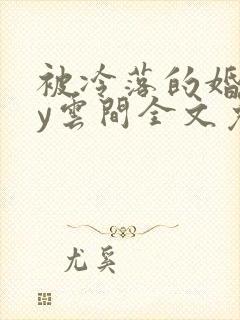 被冷落的婚
y雲間全文
尤奚